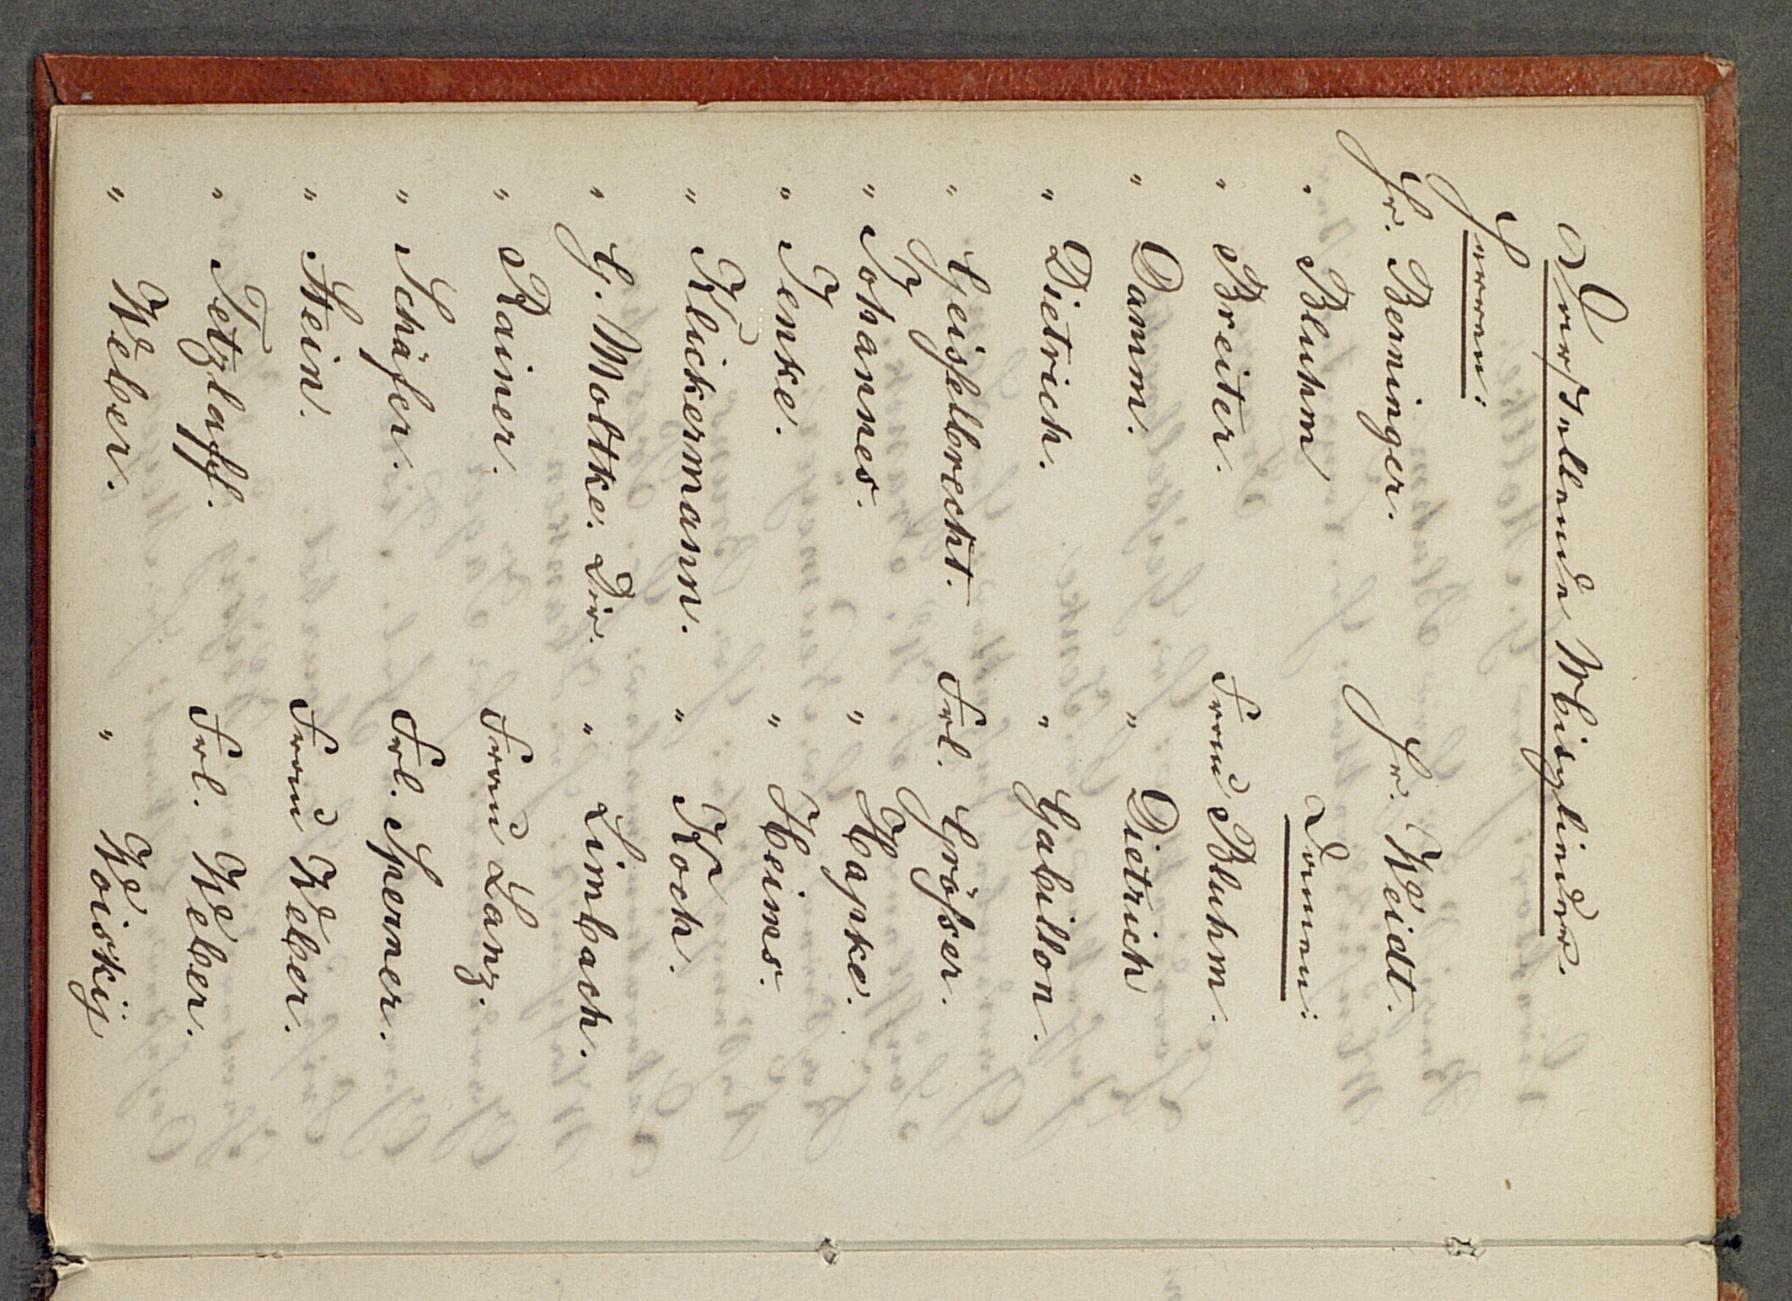 Darstellende Mitglieder.
Herren:
Hr. Berninger.
" Bluhm
" Breiter.
" Damm.
" Dietrich.
" Geisselbrecht.
" Johannes.
" Jenke.
" Klickermann.
" G. Moltke. Dir.
" Rainer.
" Schäfer.
" Stein.
" Tetzlaff.
" Weber.
Hr. Weidt.
Damen:
Frau Bluhm.
" Dietrich
" Gabillon.
Frl. Grösser.
" Hapke.
" Heims.
" Koch.
" Limbach.
Frau Lanz.
Frl. Sperner.
Frau Weber.
Frl. Weber.
" Woiskij